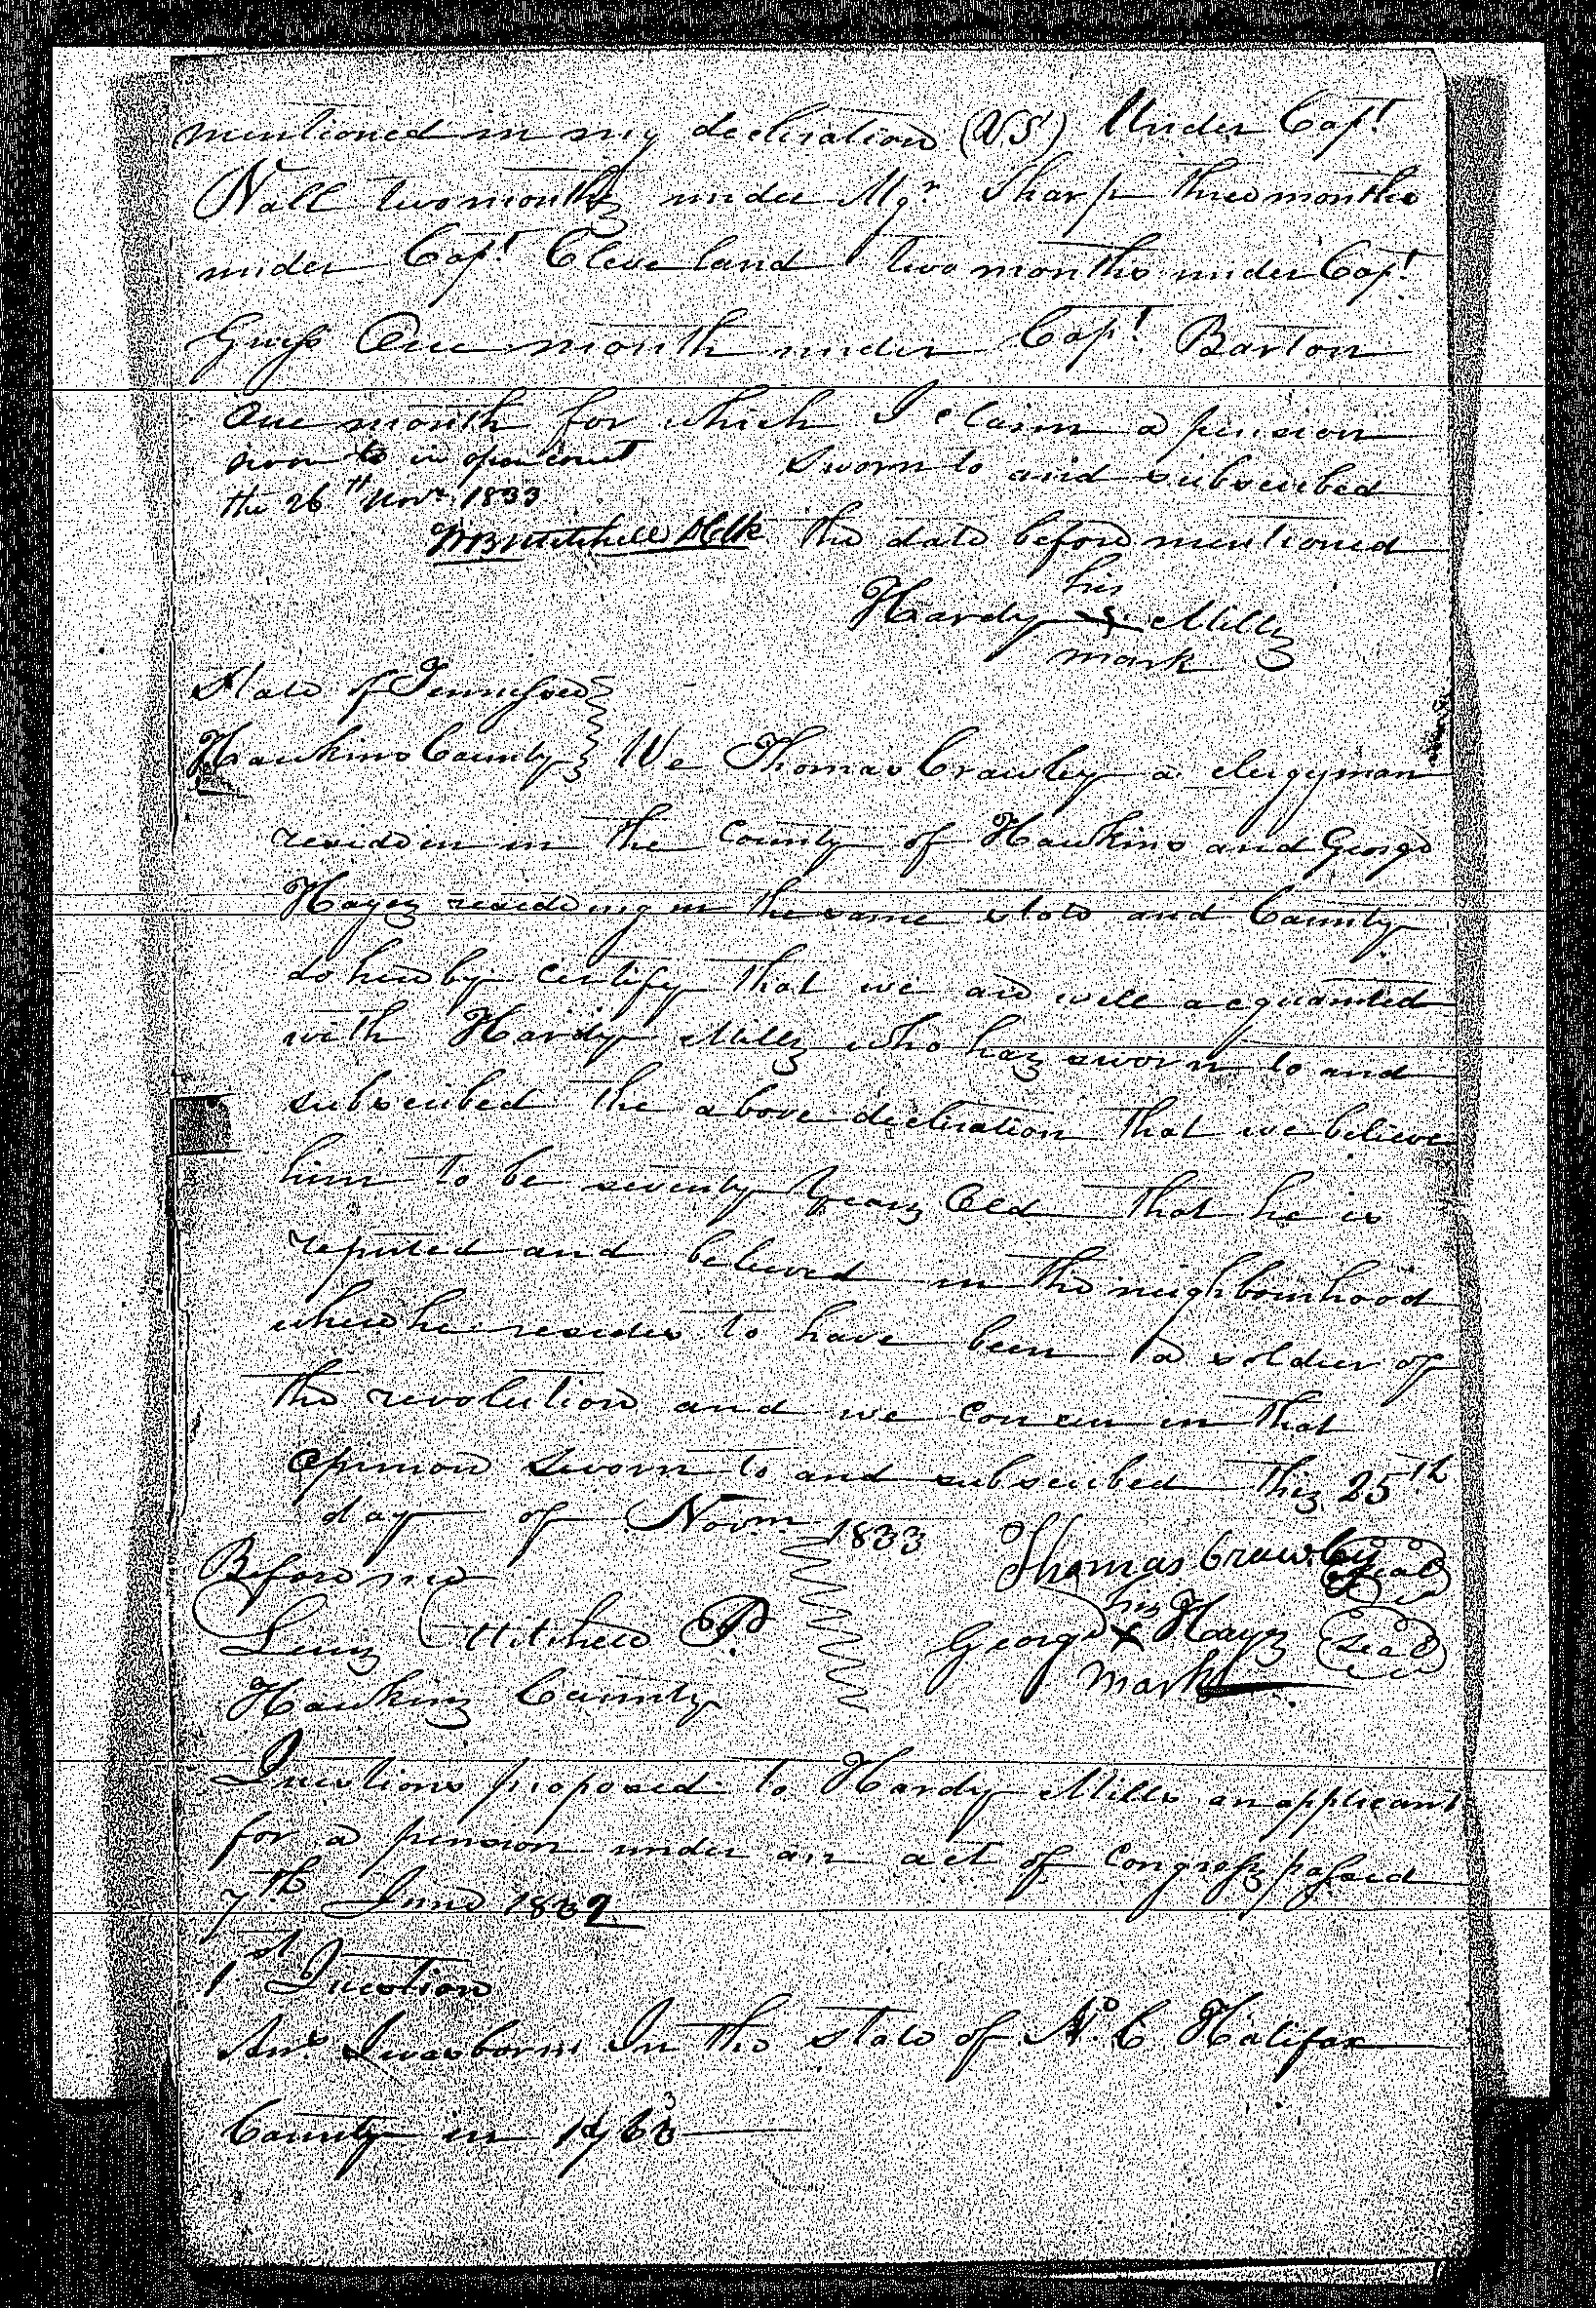 mentioned in my decliration (VS) Under Capt
Nall two months under Mgr Sharp three months
under Capt Cleveland two months under Capt
Guess One month under Capt Barton
One month for which I claim a pension
sworn to in open court
the 26th Novr 1833
Mitchell D Clk
sworn to and subscribed
the date before mentioned
his
Hardy X Mills
mark
State of Tennessee
Hawkins County We Thomas Crawley a clergyman
residein in the County of Hawkins and George
Hayes resideing in the same state and County
do hereby certify that we are well acquainted
with Hardy Mills who has sworn to and
subscribed the above decliration that we believe
him to be seventy years Old that he is
reputed and believed in the neighbourhood
where he resides to have been a soldier of
the revolution and we concur in that
opinion sworn to and subscribed this 25th
day of Novm 1833
Before me
Thomas Crawley seal
his
George X Hayes seal
mark
Lewis Mitchell JP
Hawkins County
Questions proposed to Hardy Mills an applicant
for a pension under an act of Congress passed
7th June 1832
1st Question
Ans I was born In the state of No C Halifax
County in 1763